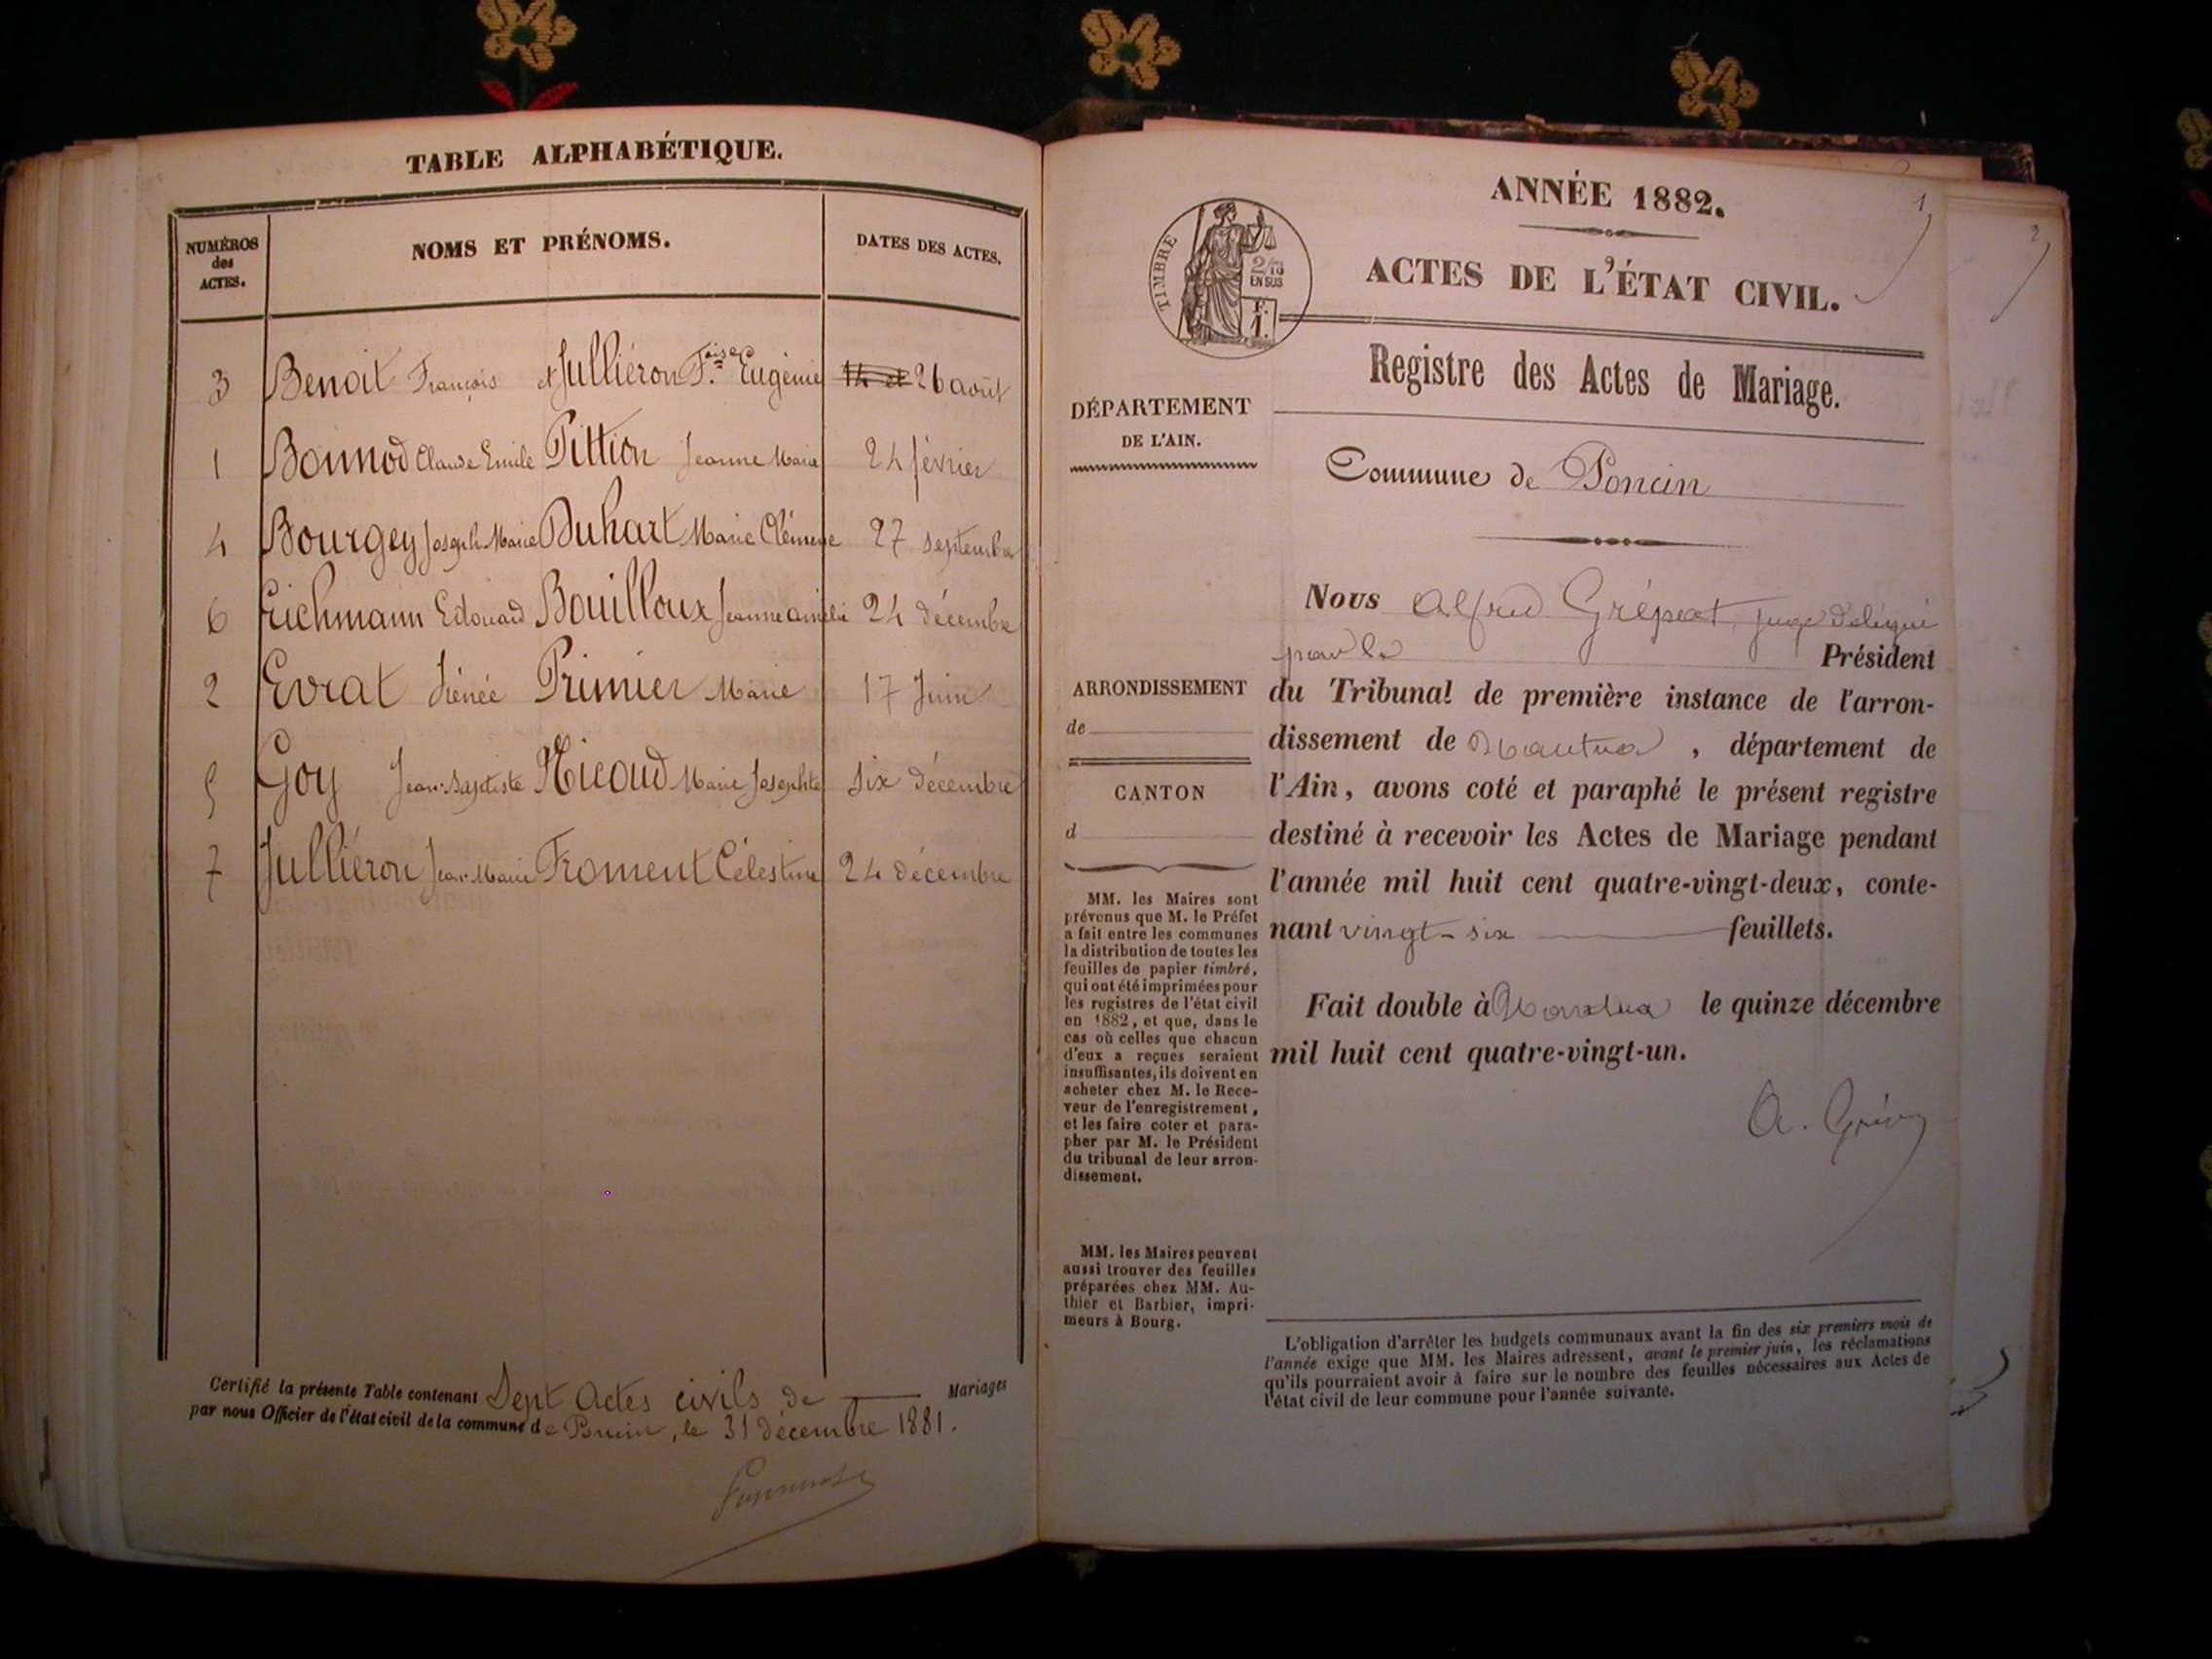 TABLE ALPHABÉTIQUE.
NUMÉROS des ACTES.
NOMS ET PRÉNOMS.
DATES DES ACTES.
3 Benoit François et Julliéron F.oise Eugénie 14 et 26 août
1 Bonnod Claude Emile Pittion Jeanne Marie 24 février
4 Bourgey Joseph Marie Duhart Marie Clémence 27 septembre
6 Eichmann Edouard Bouilloux Jeanne 24 décembre
2 Evrat Primier Marie 17 Juin
5 Goy Jean-Baptiste Nicoud Marie Josephte six décembre
7 Julliéron Jean-Marie Froment Célestine 24 décembre
Certifié la présente Table contenant Sept Actes civils de Mariages
par nous Officier de l'état civil de la commune de Poncin, le 31 décembre 1881.
1
2
ANNÉE 1882.
ACTES DE L'ÉTAT CIVIL.
TIMBRE
2/10
EN SUS
1 F.
Registre des Actes de Mariage.
DÉPARTEMENT
DE L'AIN.
Commune de Poncin
Nous Alfred Grépat, juge délégué
par le Président
du Tribunal de première instance de l'arron-
dissement de Nantua, département de
l'Ain, avons coté et paraphé le présent registre
destiné à recevoir les Actes de Mariage pendant
l'année mil huit cent quatre-vingt-deux, conte-
nant vingt-six feuillets.
Fait double à Nantua le quinze décembre
mil huit cent quatre-vingt-un.
ARRONDISSEMENT
de
CANTON
d
MM. les Maires sont
prévenus que M. le Préfet
a fait entre les communes
la distribution de toutes les
feuilles de papier timbré,
qui ont été imprimées pour
les registres de l'état civil
en 1882, et que, dans le
cas où celles que chacun
d'eux a reçues seraient
insuffisantes, ils doivent en
acheter chez M. le Rece-
veur de l'enregistrement,
et les faire coter et para-
pher par M. le Président
du tribunal de leur arron-
dissement.
MM. les Maires peuvent
aussi trouver des feuilles
préparées chez MM. Au-
thier et Barbier, impri-
meurs à Bourg.
L'obligation d'arrêter les budgets communaux avant la fin des six premiers mois de
l'année exige que MM. les Maires adressent, avant le premier juin, les réclamations
qu'ils pourraient avoir à faire sur le nombre des feuilles nécessaires aux Actes de
l'état civil de leur commune pour l'année suivante.